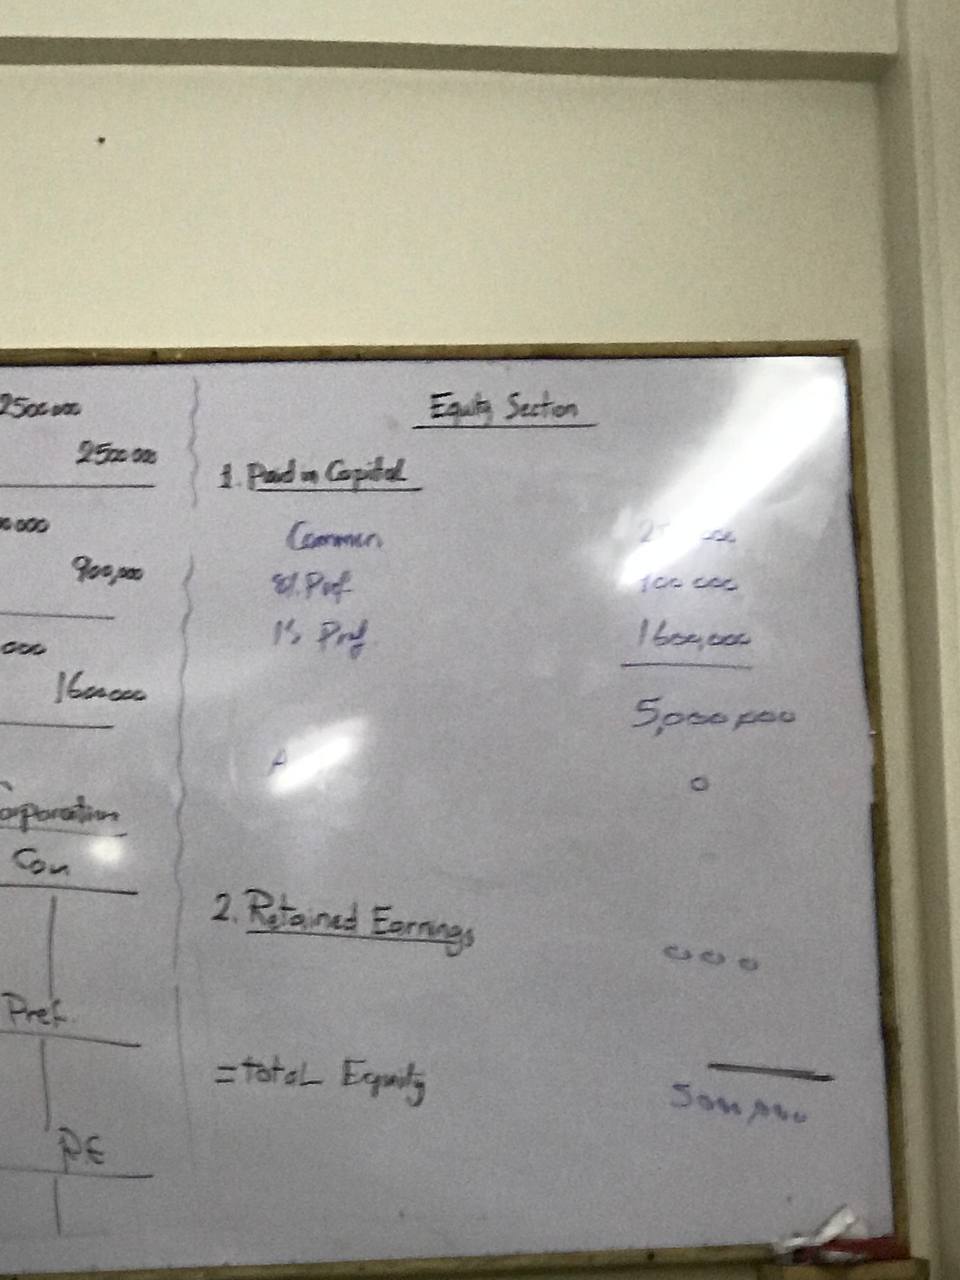 2500 000
2500 000
000
900,000
000
1600000
orporation
Com
Pref.
RE
Equity Section
1. Paid in Capital
Common
8% Pref.
Pref. 1600,000
5,000,000
0
2. Retained Earnings
000
= total Equity
5000,000